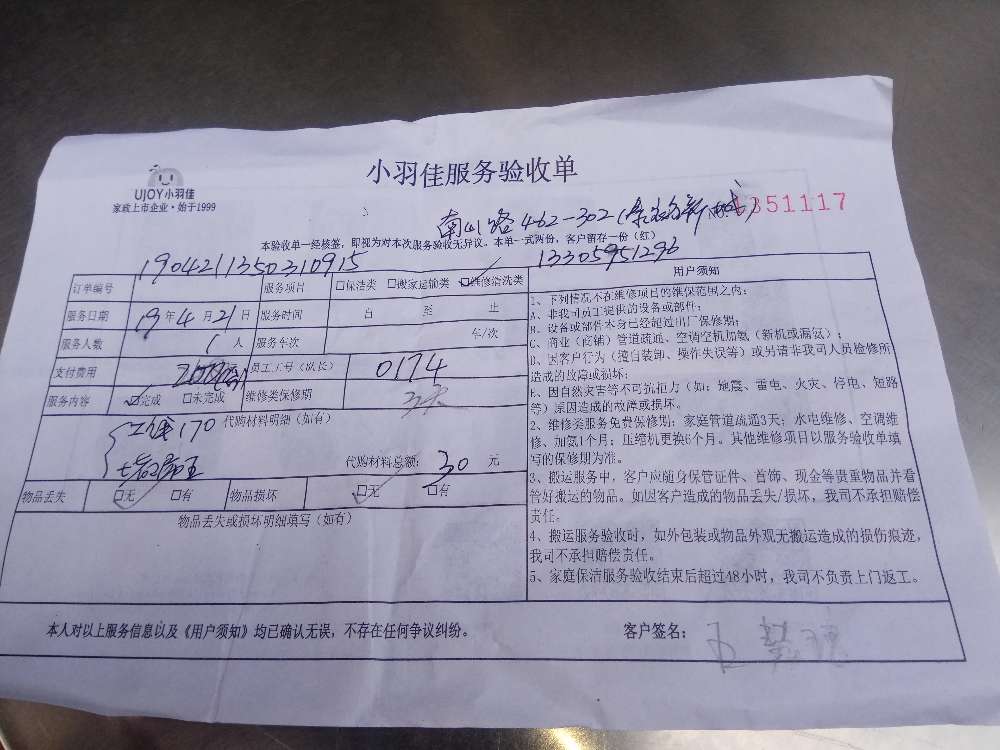 小羽佳服务验收单
UJOY小羽佳
家政上市企业·始于1999
南山路462-302
351117
本验收单一经核签，即视为对本次服务验收无异议。本单一式两份，客户留存一份（红）
13305951296
订单编号 1904211350310915 服务项目 □保洁类 □搬家运输类 ☑维修清洗类
服务日期 19年4月21日 服务时间 点 至 止
服务人数 1人 服务车次 年/次
支付费用 200 员工工号（队长） 0174
服务内容 ☑完成 □未完成 维修类保修期 3天
工钱170 代购材料明细（如有）
代购材料总额：30元
物品丢失 ☑无 □有 物品损坏 ☑无 □有
物品丢失或损坏明细填写（如有）
用户须知
1、下列情况不在维修项目的维保范围之内：
A、非我司员工提供的设备或部件；
B、设备或部件本身已经超过出厂保修期；
C、商业（商铺）管道疏通，空调空机加氨（新机或漏氨）；
D、因客户行为（独自装卸、操作失误等）或另请非我司人员检修所
造成的故障或损坏；
E、因自然灾害等不可抗拒力（如：地震、雷电、火灾、停电、短路
等）原因造成的故障或损坏。
2、维修类服务免费保修期：家庭管道疏通3天；水电维修、空调维
修、加氨1个月；压缩机更换6个月。其他维修项目以服务验收单填
写的保修期为准。
3、搬运服务中，客户应随身保管证件、首饰、现金等贵重物品并看
管好搬运的物品。如因客户造成的物品丢失/损坏，我司不承担赔偿
责任。
4、搬运服务验收时，如外包装或物品外观无搬运造成的损伤痕迹，
我司不承担赔偿责任。
5、家庭保洁服务验收结束后超过48小时，我司不负责上门返工。
本人对以上服务信息以及《用户须知》均已确认无误，不存在任何争议纠纷。
客户签名：